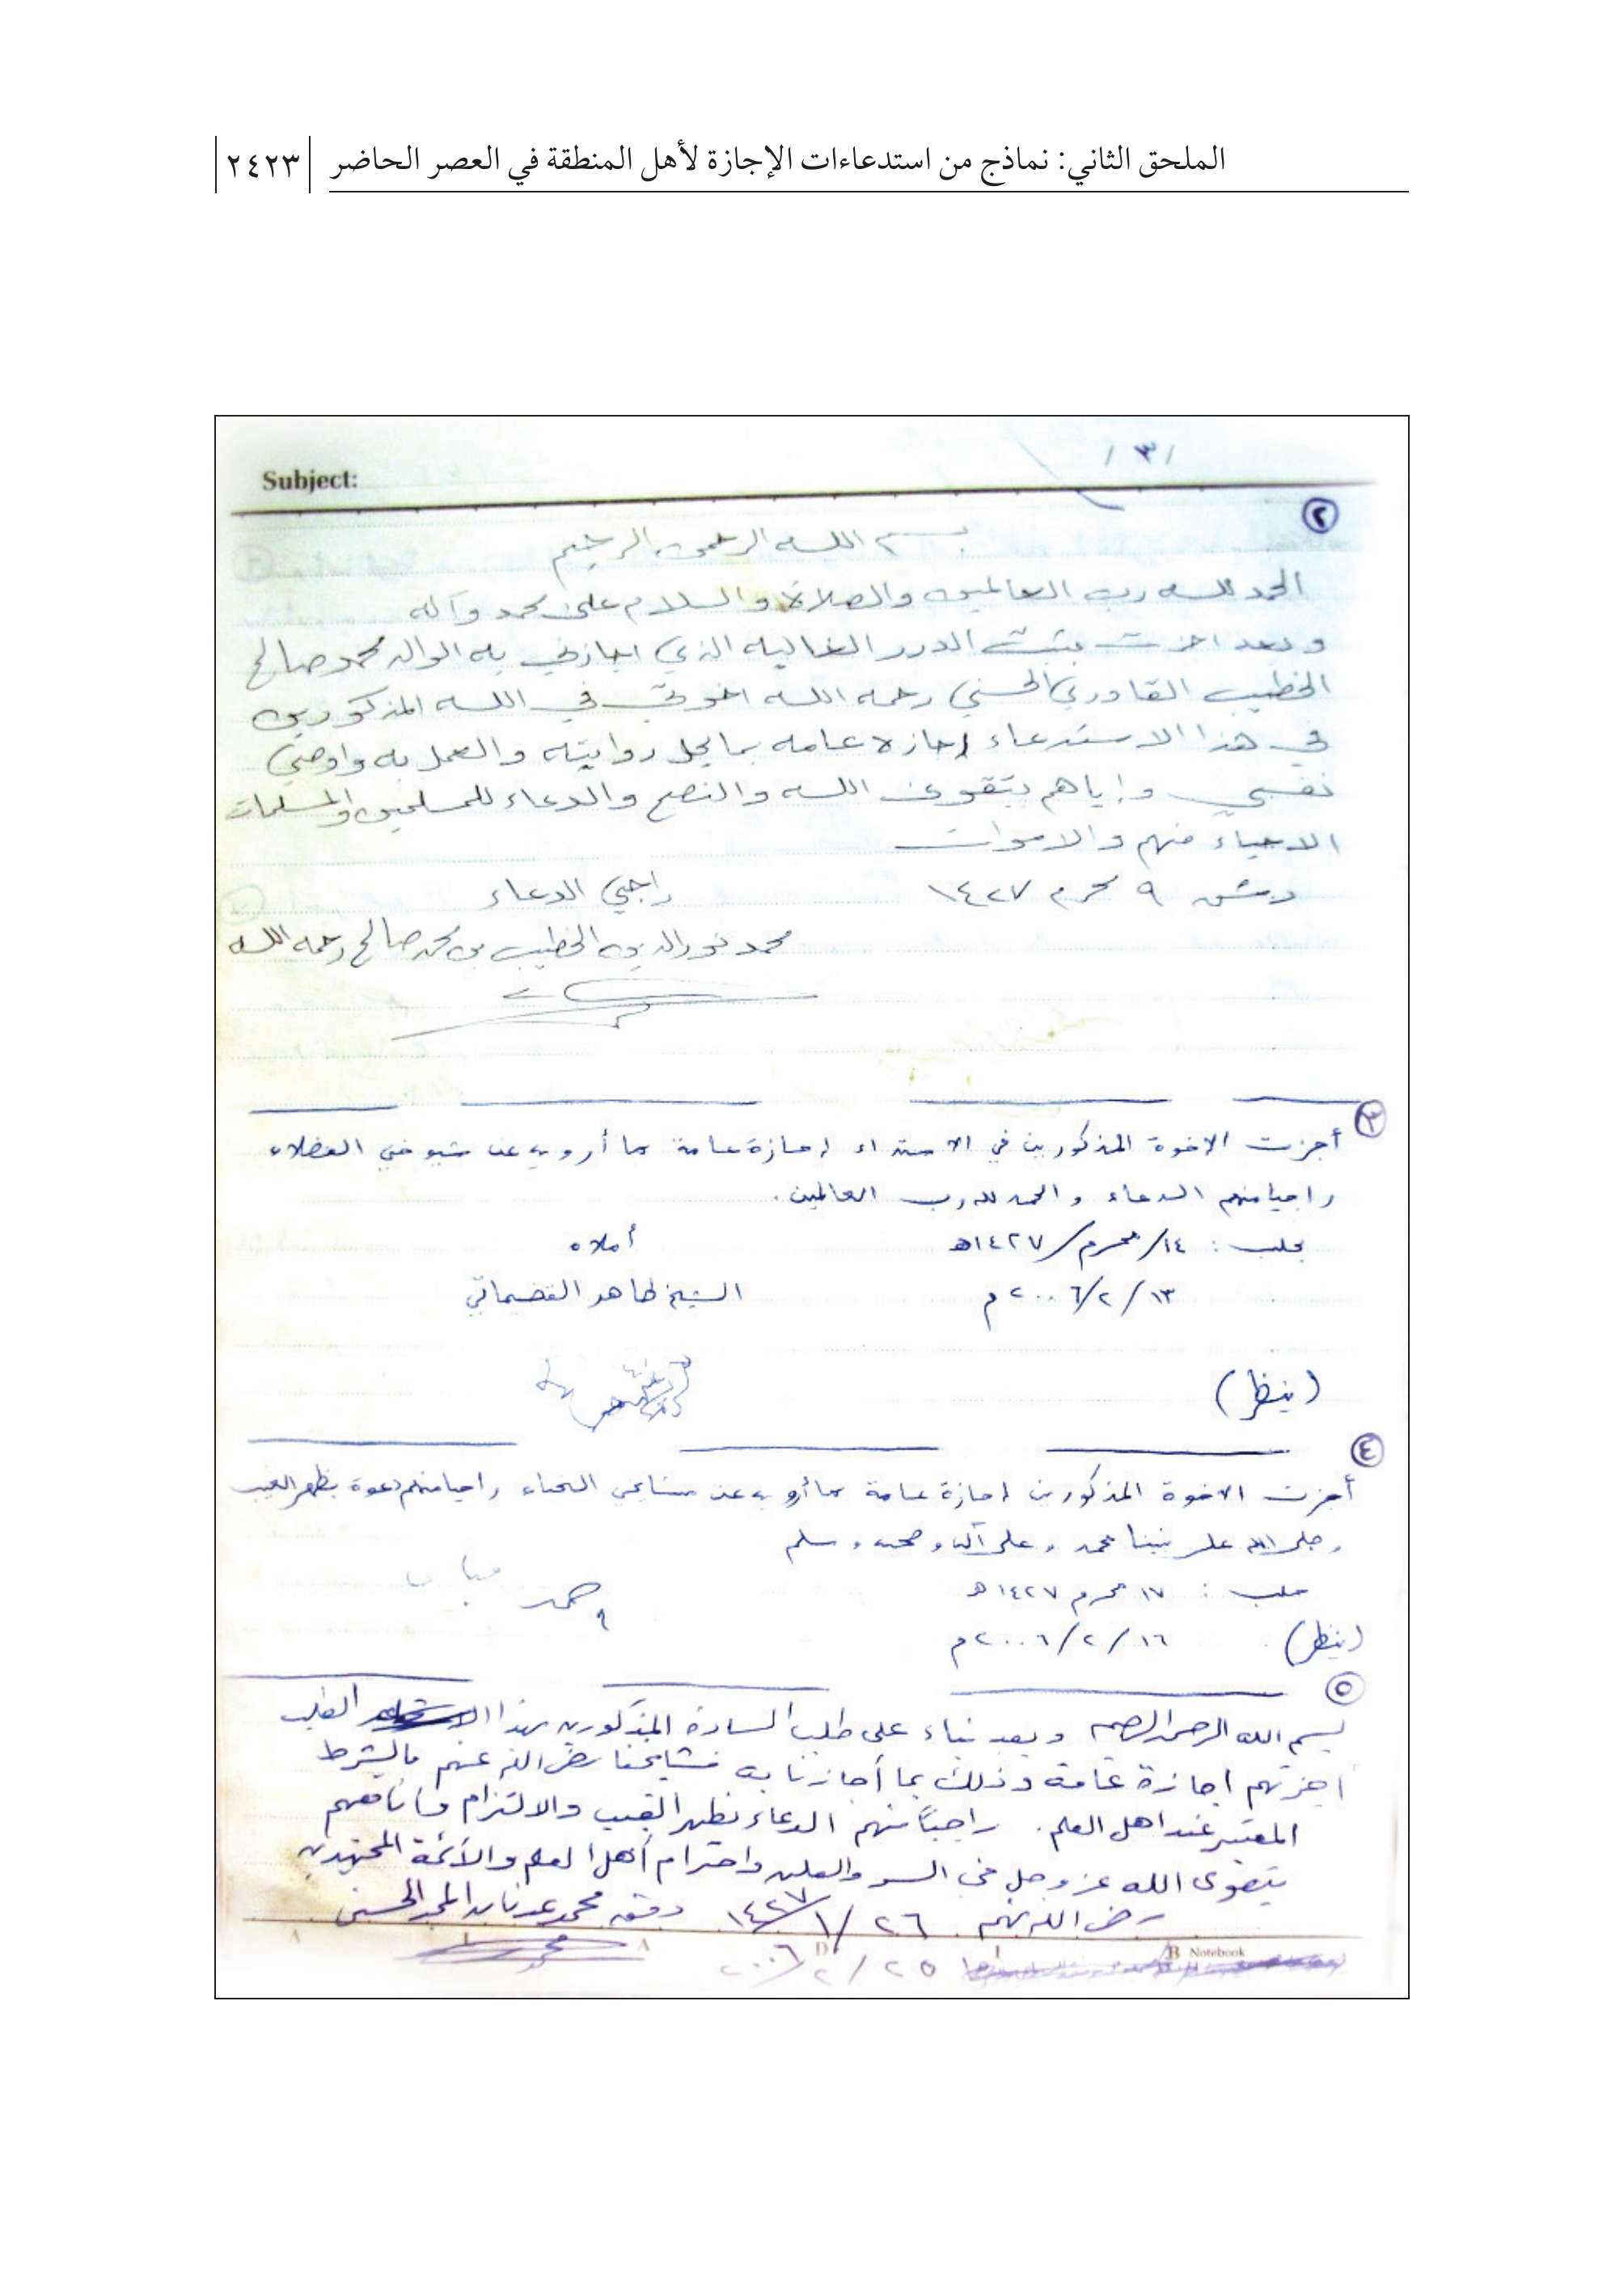 الملحق الثاني: نماذج من استدعاءات الإجازة لأهل المنطقة في العصر الحاضر ٢٤٢٣
/ ٣ /
Subject:
٢
بسم الله الرحمن الرحيم
الحمد لله رب العالمين والصلاة والسلام على محمد وآله
وبعد اجزت بثبت الدرر الغاليه الذي اجازني به الوالد محمد صالح
الخطيب القادري الحسني رحمه الله اخوتي في الله المذكورين
في هذا الاستدعاء إجازه عامه بما يحل روايته والعمل به واوصي
نفسي وإياهم بتقوى الله والنصح والدعاء للمسلمين والمسلمات
الاحياء منهم والاموات
دمشق ٩ محرم ١٤٢٧ راجي الدعاء
محمد نور الدين الخطيب بن محمد صالح رحمه الله
٣
أجزت الإخوة المذكورين في الاستدعاء إجازة عامة بما أرويه عن شيوخي الفضلاء
راجيا منهم الدعاء والحمد لله رب العالمين.
بحلب: ١٤/محرم/١٤٢٧هـ أملاه
١٣/٢/٢٠٠٦م الشيخ طاهر القضيماتي
(ينظر)
٤
أجزت الاخوة المذكورين إجازة عامة بما أرويه عن مشايخي راجيا منهم دعوة بظهر الغيب
وصلى الله على نبينا محمد وعلى آله وصحبه وسلم
حلب: ١٧ محرم ١٤٢٧هـ
(ينظر) ١٦/٢/٢٠٠٦م
٥
بسم الله الرحمن الرحيم وبعد بناء على طلب السادة المذكورين بهذا الطلب
اجزتهم اجازة عامة وذلك بما أجازنا به مشايخنا رضي الله عنهم بالشرط
المعتبر عند اهل العلم. راجياً منهم الدعاء بظهر الغيب والالتزام
بتقوى الله عز وجل في السر والعلن واحترام أهل العلم والأئمة المجتهدين
رضي الله عنهم ٢٦/١/١٤٢٧ دمشق محمد عدنان المجد الحسني
٢٥/٢/٢٠٠٦
Notebook